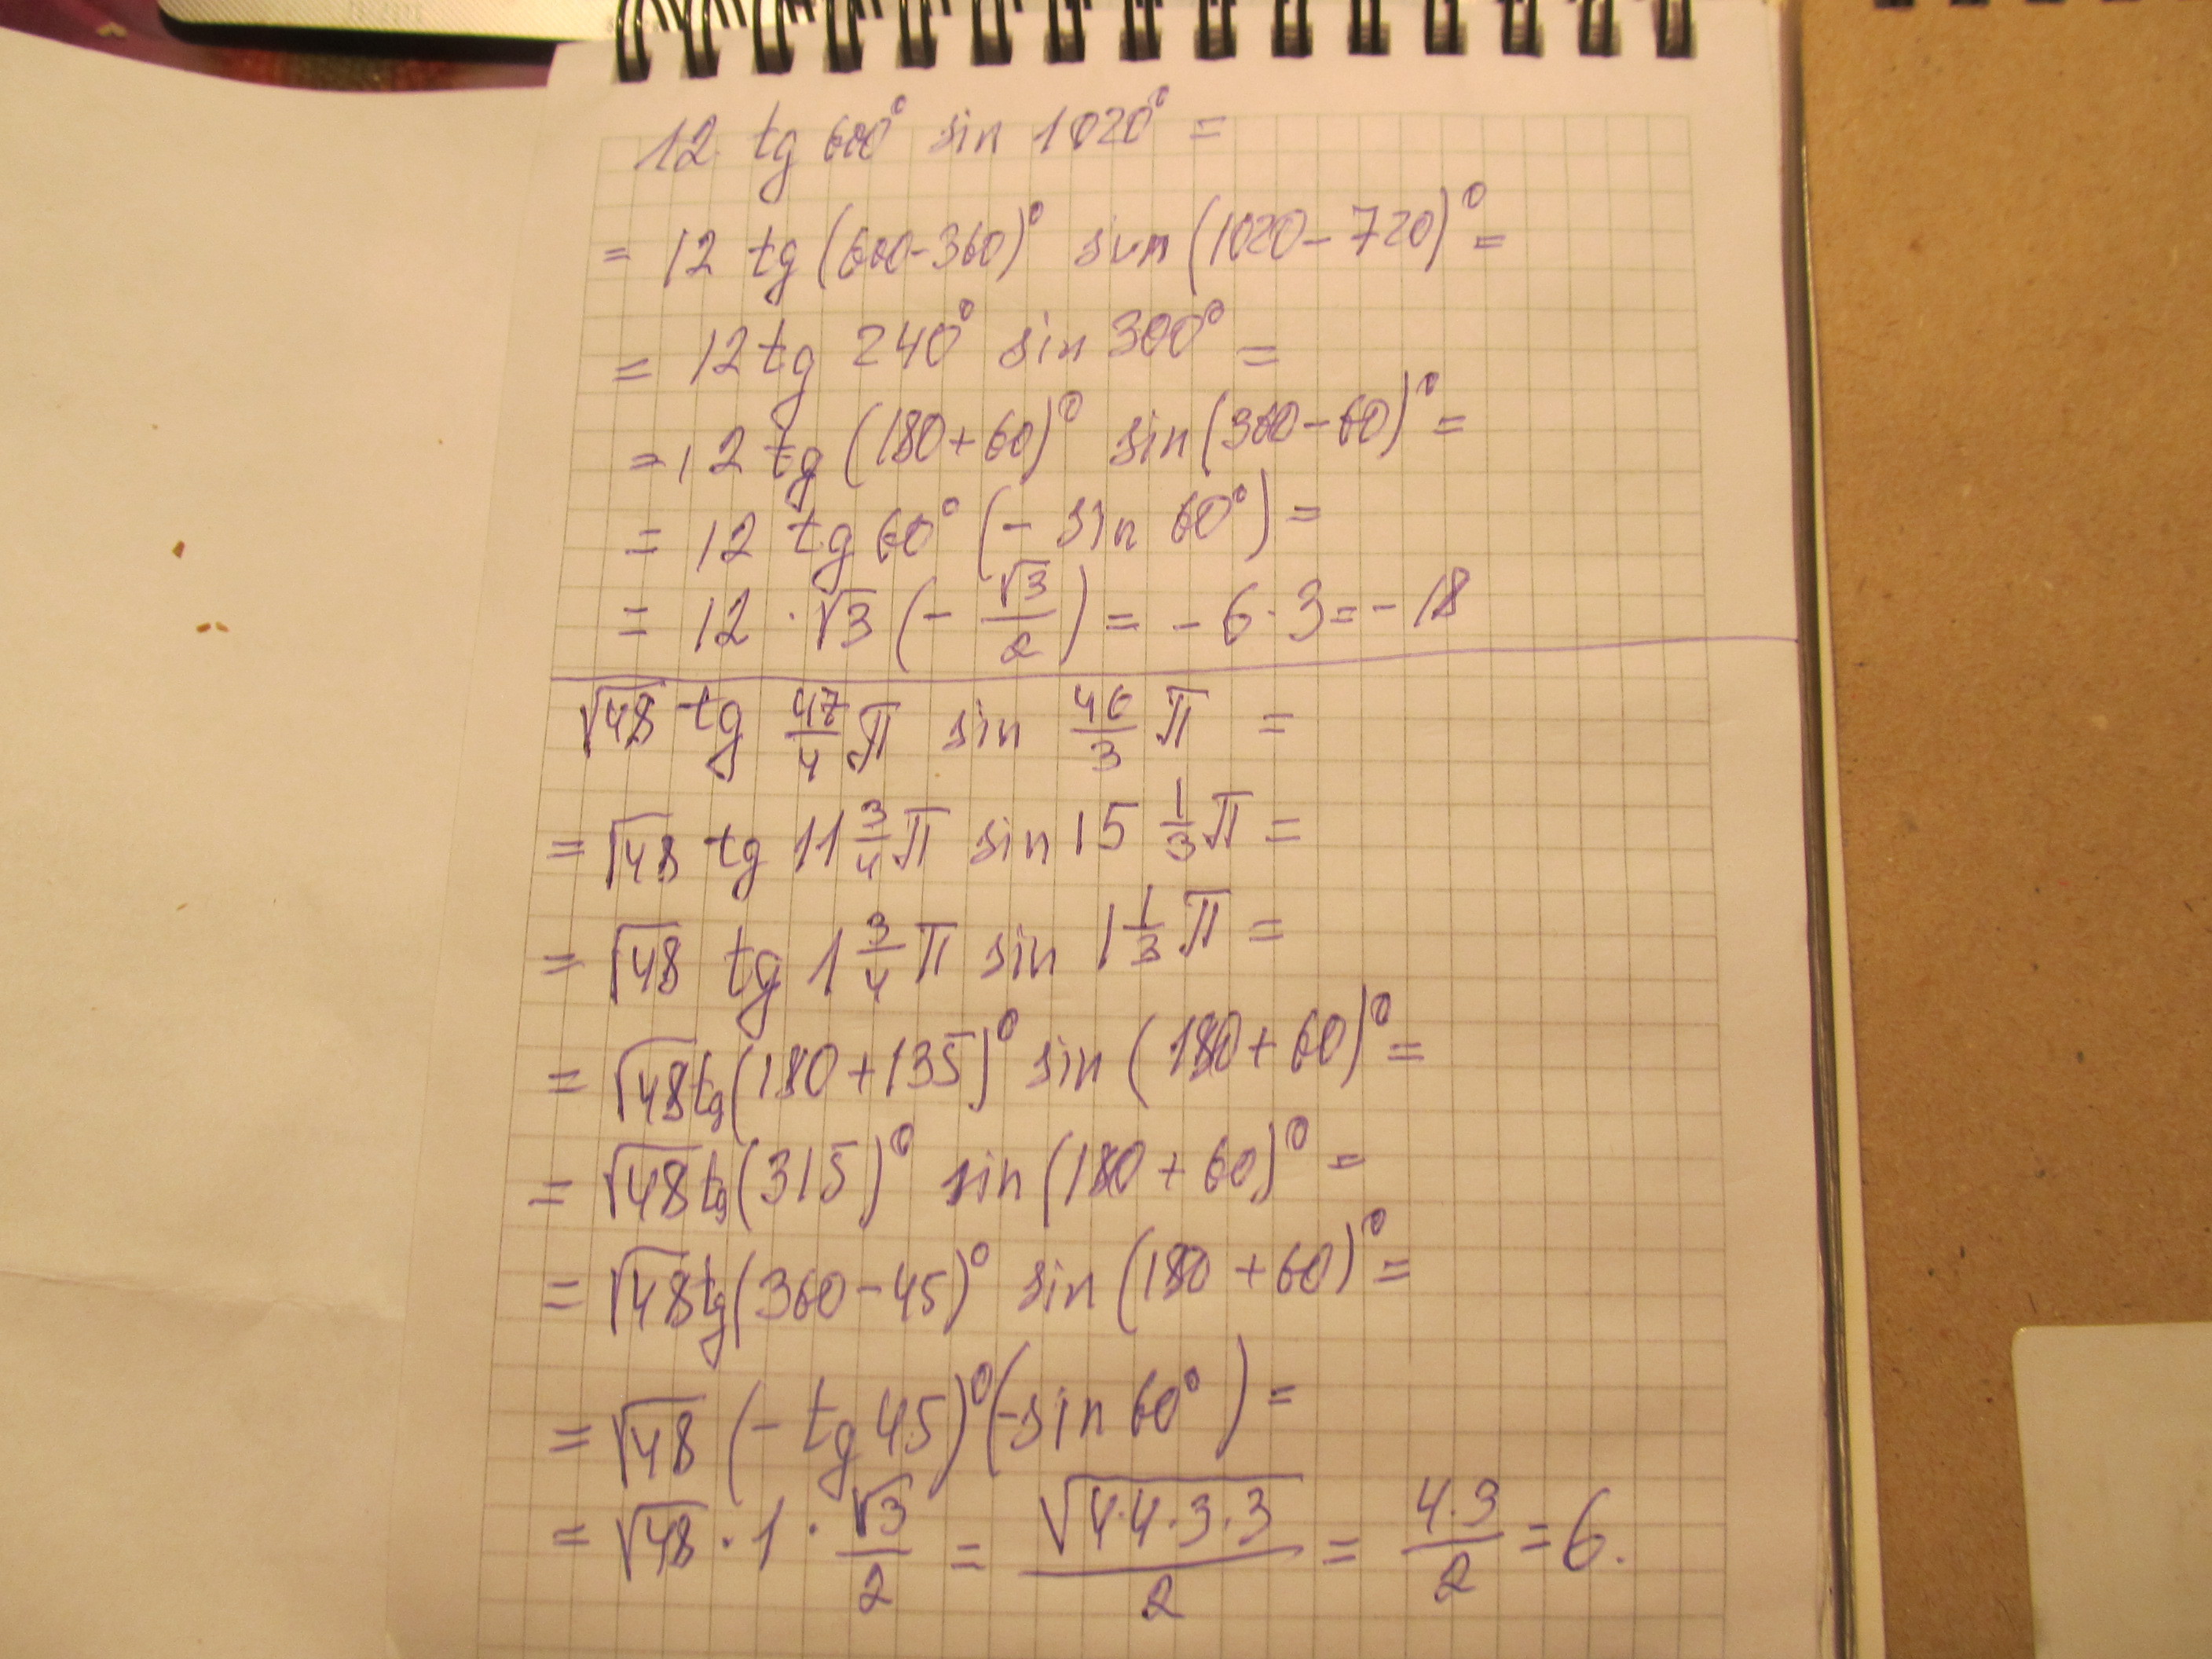 12 tg 600° sin 1020° =
= 12 tg (600-360)° sin (1020-720)° =
= 12 tg 240° sin 300° =
= 12 tg (180+60)° sin (360-60)° =
= 12 tg 60° (- sin 60°) =
= 12 · √3 (- √3/2) = - 6 · 3 = - 18
√48 tg 47/4 π sin 46/3 π =
= √48 tg 11 3/4 π sin 15 1/3 π =
= √48 tg 1 3/4 π sin 1 1/3 π =
= √48 tg (180+135)° sin (180+60)° =
= √48 tg (315)° sin (180+60)° =
= √48 tg (360-45)° sin (180+60)° =
= √48 (- tg 45)° (-sin 60°) =
= √48 · 1 · √3/2 = √(4·4·3·3)/2 = 4·3/2 = 6.